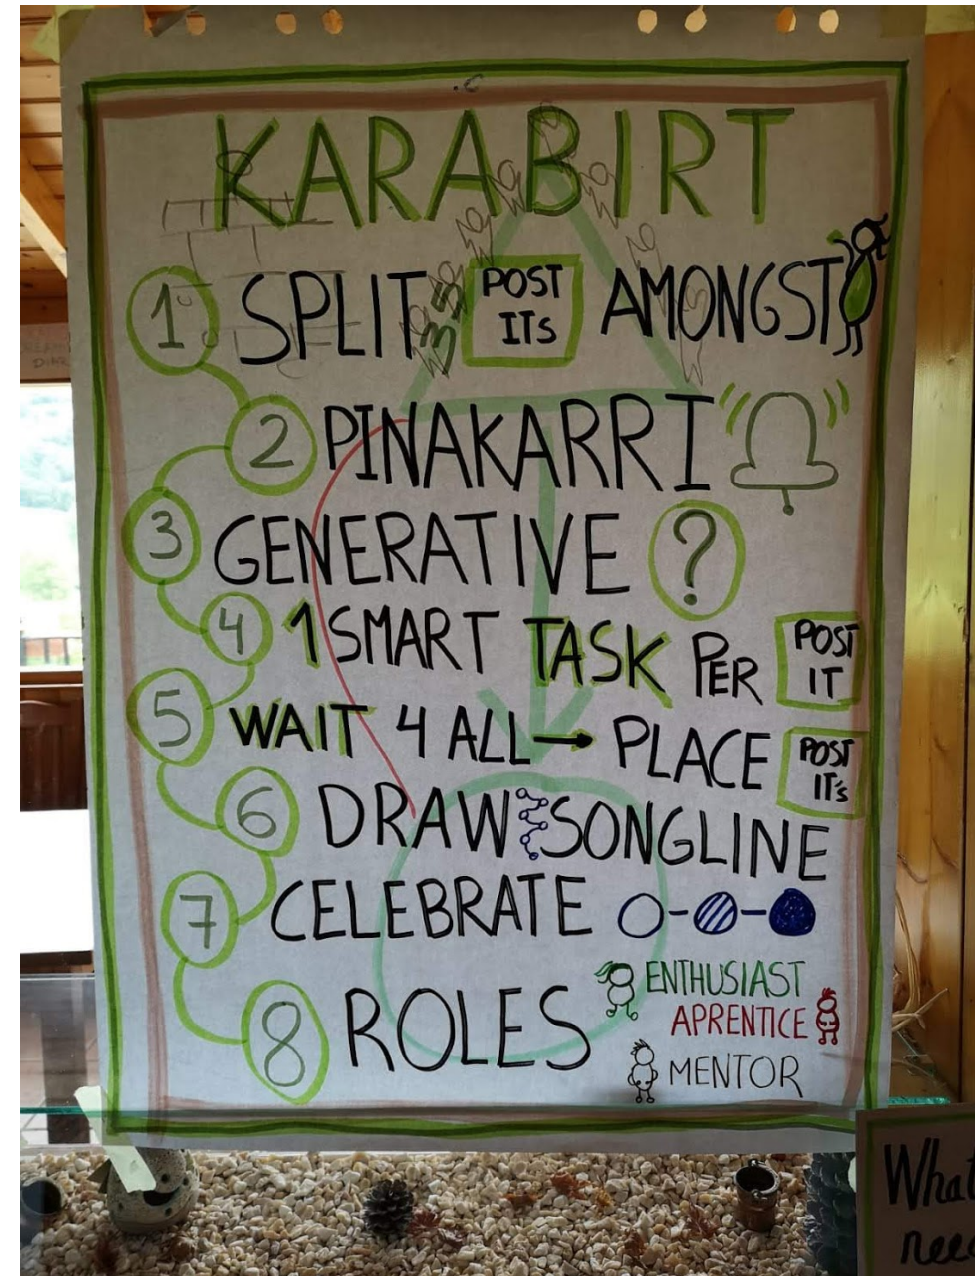 KARABIRT
1 SPLIT POST ITs AMONGST
2 PINAKARRI
3 GENERATIVE ?
4 1 SMART TASK PER POST IT
5 WAIT 4 ALL → PLACE POST IT's
6 DRAW SONGLINE
7 CELEBRATE
8 ROLES
ENTHUSIAST
APRENTICE
MENTOR
What
nee